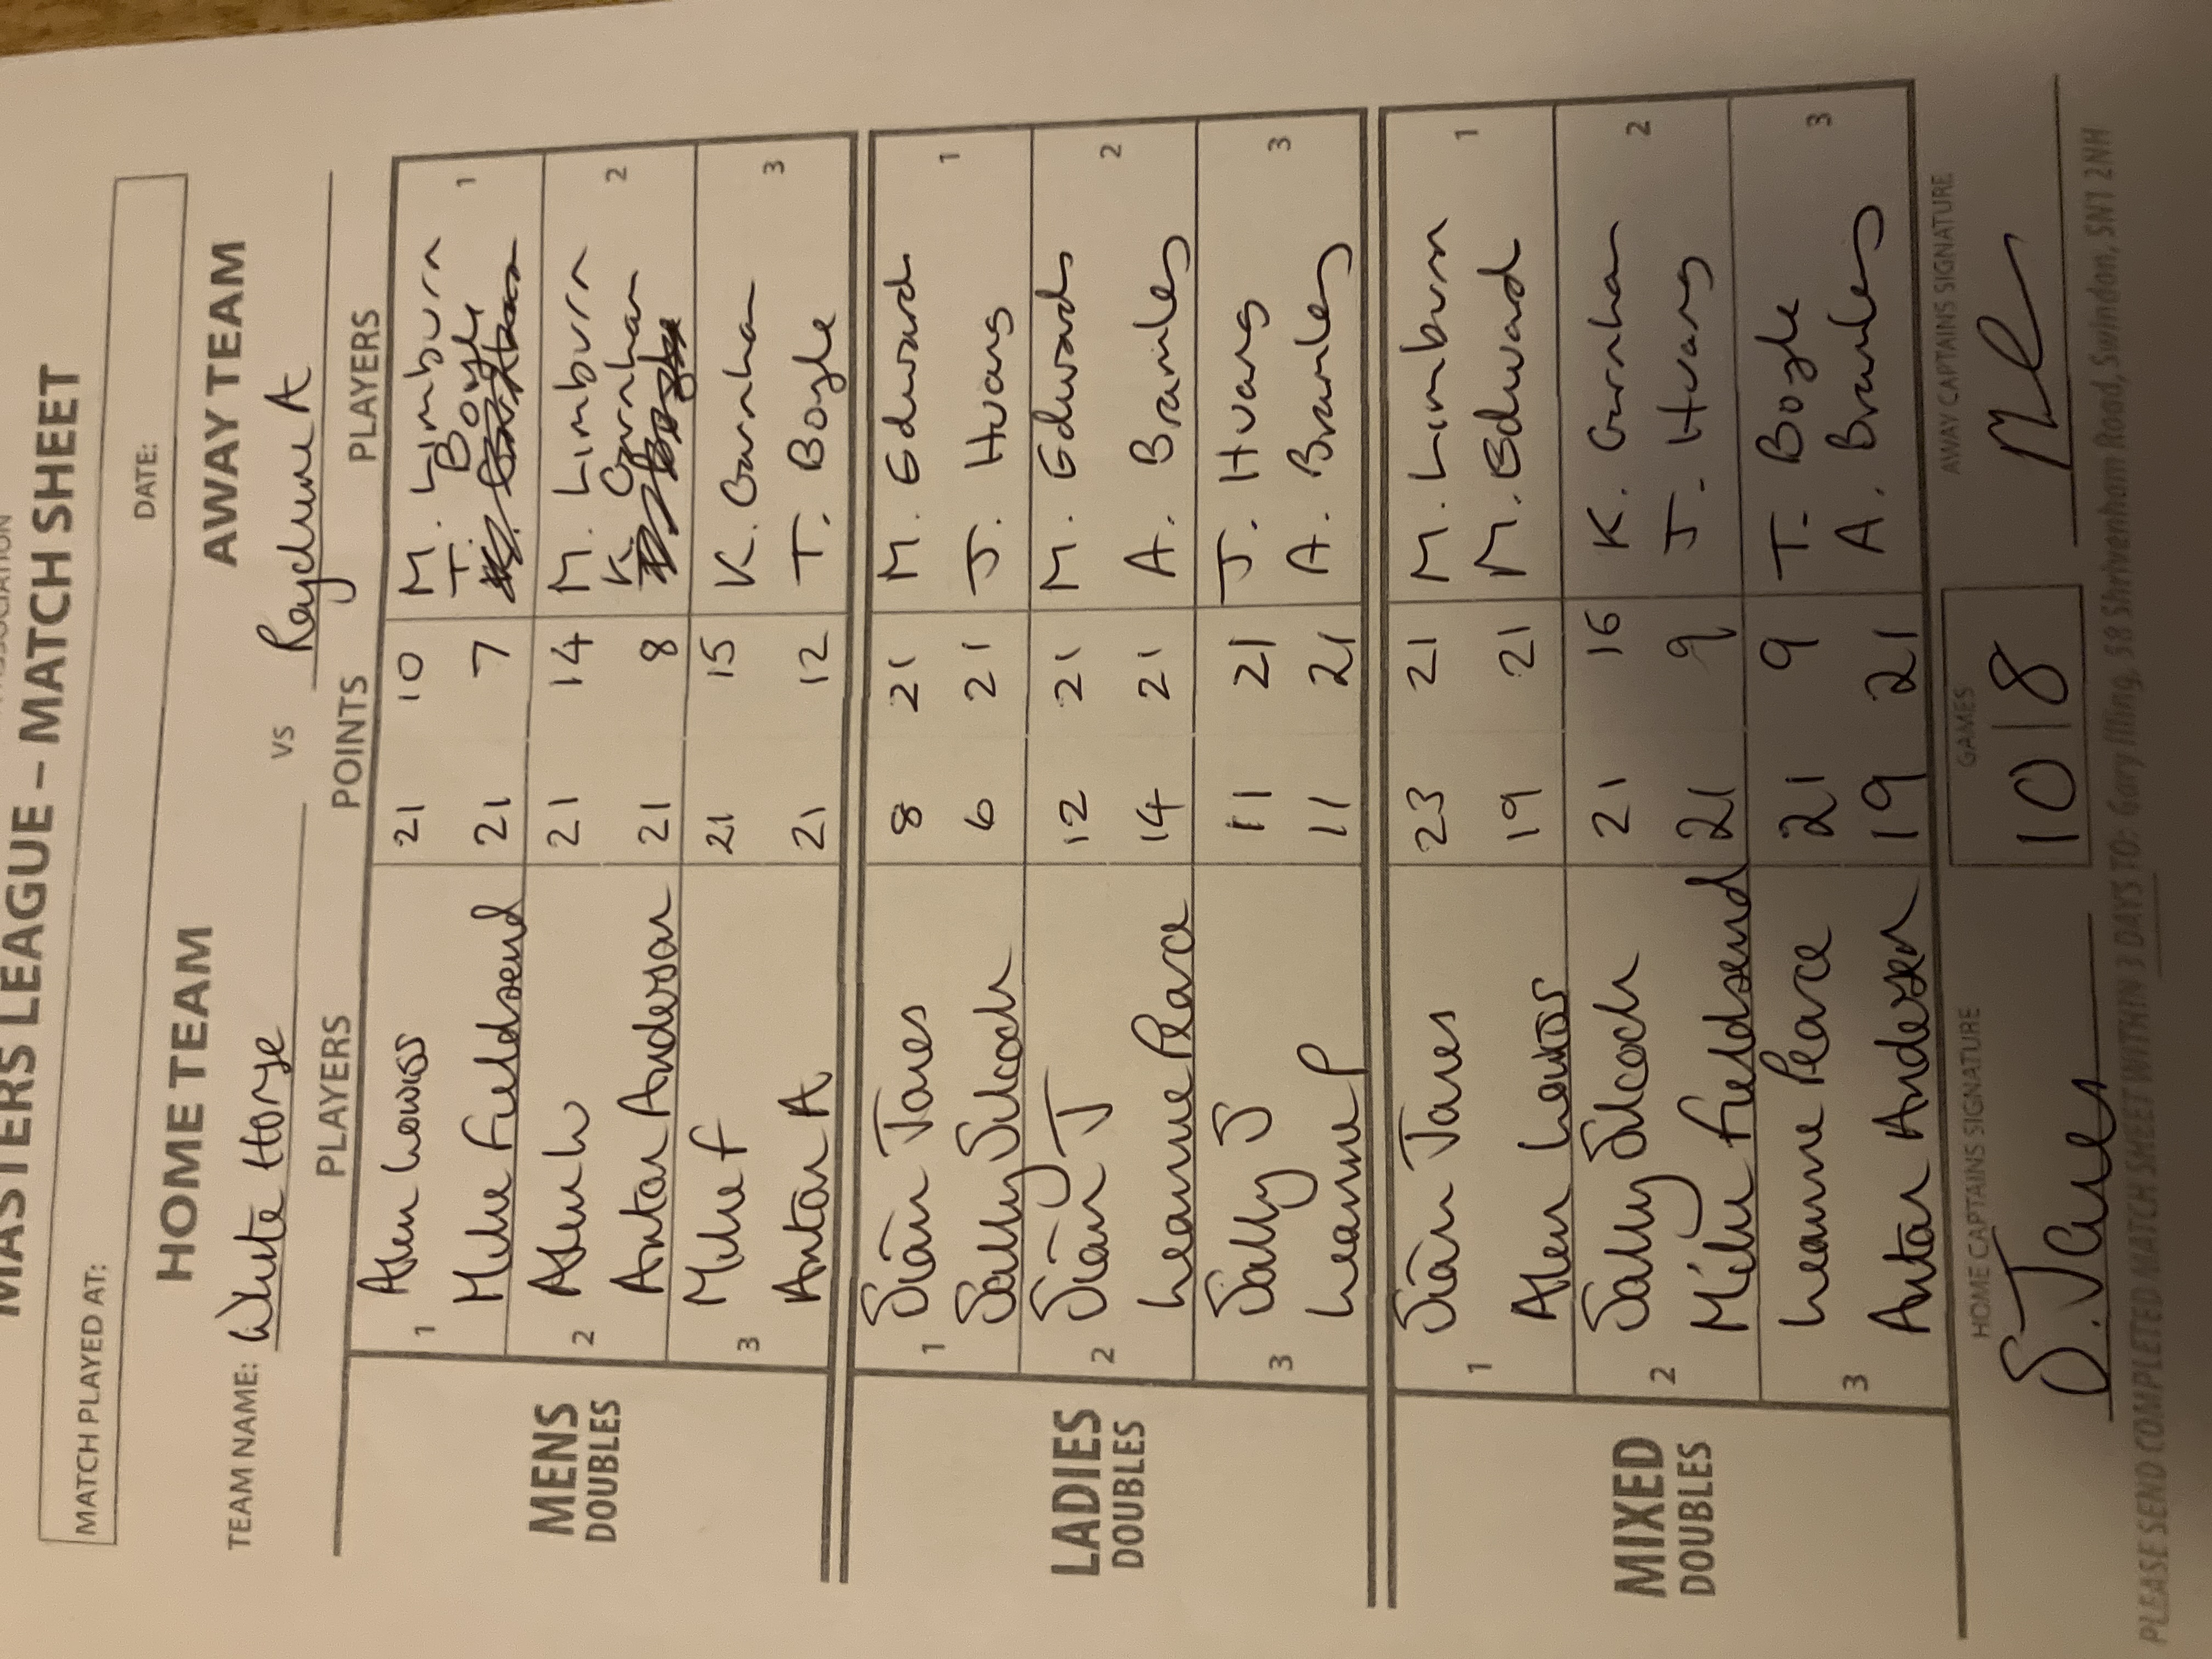 ASSOCIATION
MASTERS LEAGUE – MATCH SHEET
MATCH PLAYED AT: DATE:
HOME TEAM AWAY TEAM
TEAM NAME: White Horse VS Raydune A
PLAYERS POINTS PLAYERS
MENS DOUBLES
1 Alen Lewis 21 10 M. Limburn 1
Mike Fieldsend 21 7 T. Boyle
2 Alen L 21 14 M. Limburn 2
Anton Anderson 21 8 K. Garnham
3 Mike F 21 15 K. Garnham 3
Anton A 21 12 T. Boyle
LADIES DOUBLES
1 Siân Jones 8 21 M. Edwards 1
Sally Silcock 6 21 J. Huang
2 Siân J 12 21 M. Edwards 2
Leanne Pearce 14 21 A. Bramley
3 Sally S 11 21 J. Huang 3
Leanne P 11 21 A. Bramley
MIXED DOUBLES
1 Siân Jones 23 21 M. Limburn 1
Alen Lewis 19 21 M. Edward
2 Sally Silcock 21 16 K. Garnham 2
Mike Fieldsend 21 9 J. Huang
3 Leanne Pearce 21 9 T. Boyle 3
Anton Anderson 19 21 A. Bramley
HOME CAPTAINS SIGNATURE GAMES AWAY CAPTAINS SIGNATURE
S. Jones 10 | 8
PLEASE SEND COMPLETED MATCH SHEET WITHIN 3 DAYS TO: Gary Illing, 58 Shrivenham Road, Swindon, SN1 2NH